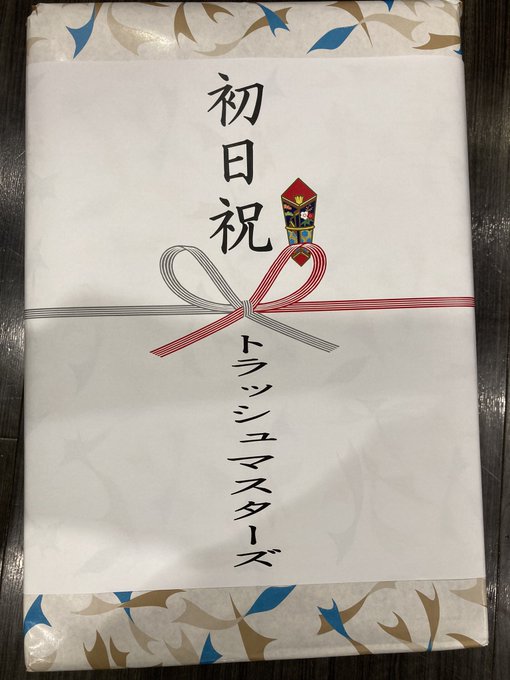 初日祝
トラッシュマスターズ